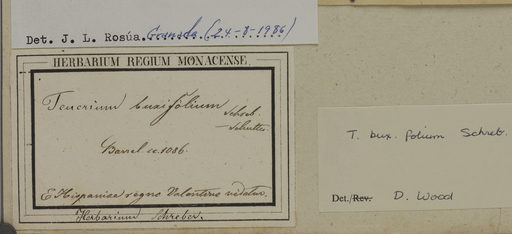 Det. J. L. Rosúa. Granada (24-8-1986)
HERBARIUM REGIUM MONACENSE.
Teucrium buxifolium Schreb.
Barrel ic. 1086.
E Hispaniae regno Valentino
Herbarium Schreber.
T. buxifolium Schreb.
Det./Rev. D. Wood